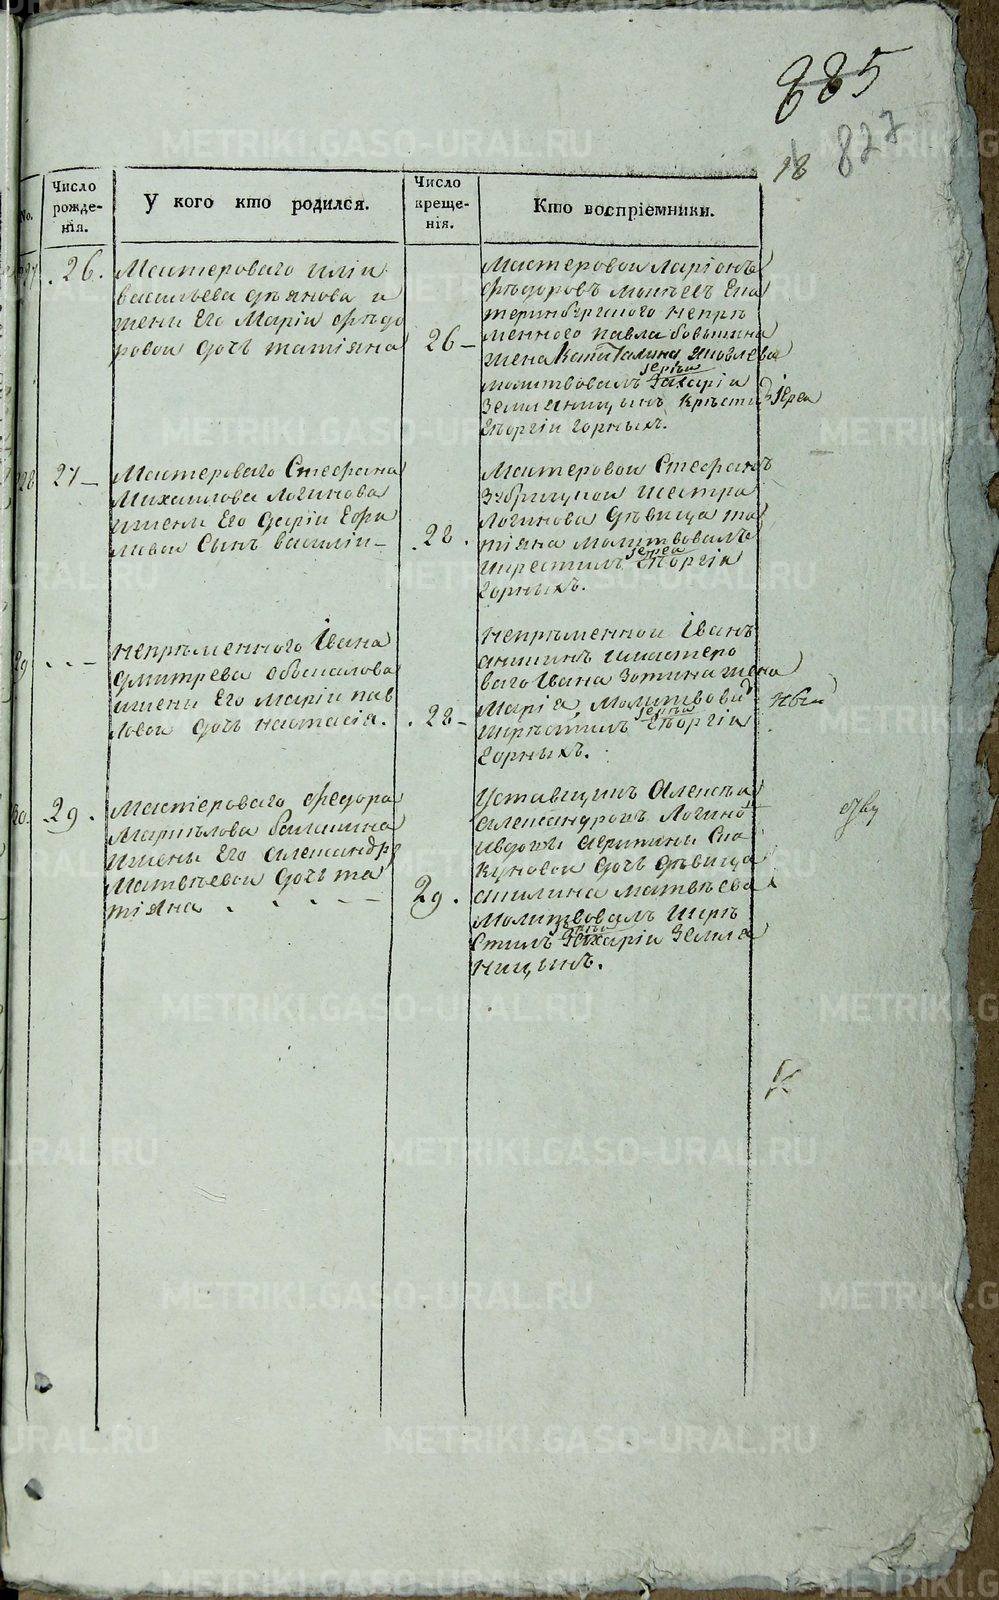 885
827
18
No.
Число рожденія.
У кого кто родился.
Число крещенія.
Кто воспріемники.
26.
Мастероваго Иліи
васильева дѣянова и
жени Его Маріи Фѣдо
ровои дочь татіяна
26
Мастеровои Ларіонъ
Фѣдоровъ Ека
теринбургского непрѣ
менного павла
жена Капиталина Яковлева
молитвовалъ іереи Захаріи
Землиницынъ крѣстил іереи
Гѣоргіи Горныхъ.
28
27
Мастероваго Стефана
Михаилова Логинова
ижени Его дарiи Ефи
мовои Сынъ василіи
28.
Мастеровои Стефанъ
ишестра
Логинова дѣвица та
тіяна молитвовалъ
икрестилъ іереи Гѣоргіи
Горныхъ.
29
Непрѣменного Івана
дмитрева
ижени Его Маріи пав
ловои дочь настасія.
28
Непрѣменнои Іванъ
аншинъ имастеро
ваго Івана Зотина жена
Марія, Молитвовал
икрѣстилъ іереи Гѣоргіи
Горныхъ.
30.
29.
Мастероваго Федора
ижены Его александр
Матвѣевои дочь та
тіяна
29.
Уставщикъ Алексѣи
александровъ Логино
дочь дѣвица
акилина матвѣева
Молитвовалъ икрѣ
стилъ іереи Захаріи Земля
ницынъ.
METRIKI.GASO-URAL.RU